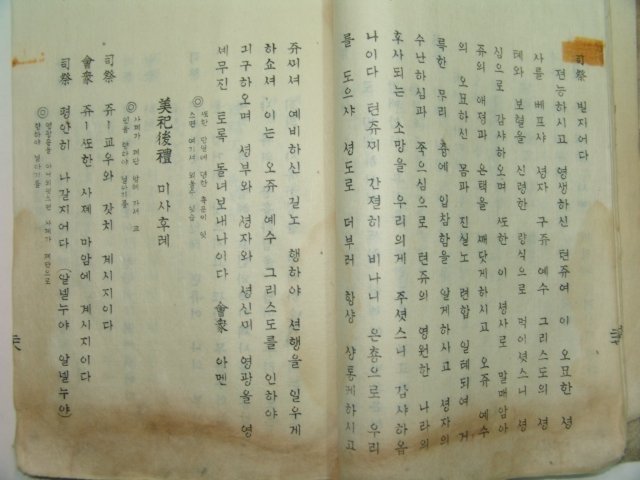 司祭 빌지어다
젼능하시고 영생하신 텬쥬여 이 오묘한 셩
사를 베프샤 셩자 구쥬 예수 그리스도의 셩
톄와 보혈을 신령한 량식으로 먹이셧스니 셩
심으로 감샤하오며 또한 이 셩사로 말매암아
쥬의 애졍과 은택을 깨닷게하시고 오쥬 예수
의 오묘하신 몸과 진실노 련합 일톄되여 거
룩한 무리 춍에 입참함을 알게하사고 셩자의
수난하심과 죽으심으로 텬쥬의 영원한 나라의
후사되는 소망을 우리의게 주셧스니 감샤하옵
나이다 텬쥬끠 간졀히 비나니 은춍으로 우리
를 도으샤 셩도로 더부러 항샹 샹통케하시고
쥬씨셔 예비하신 길노 행하야 션행을 일우게
하쇼셔 이는 오쥬 예수 그리스도를 인하야
긔구하오며 셩부와 셩자와 셩신끠 영광을 영
녜무진 토록 돌녀보내나이다 會衆 아멘
◎또한 만일에 뎡한 츅문이 잇
스면 여기셔 외울수 잇슴
美祀後禮 미사후례
◎사졔가 졔단 압헤 가셔 교
인을 향하야 닐아기를
司祭 쥬ㅣ교우와 갓치 계시지이다
會衆 쥬ㅣ또한 사졔 마암에 계시지이다
司祭 평안히 나갈지어다 (알넬누야 알넬누야)
◎영광숑을 아니외엿스면 사졔가 졔단으로
향하야 닐아기를